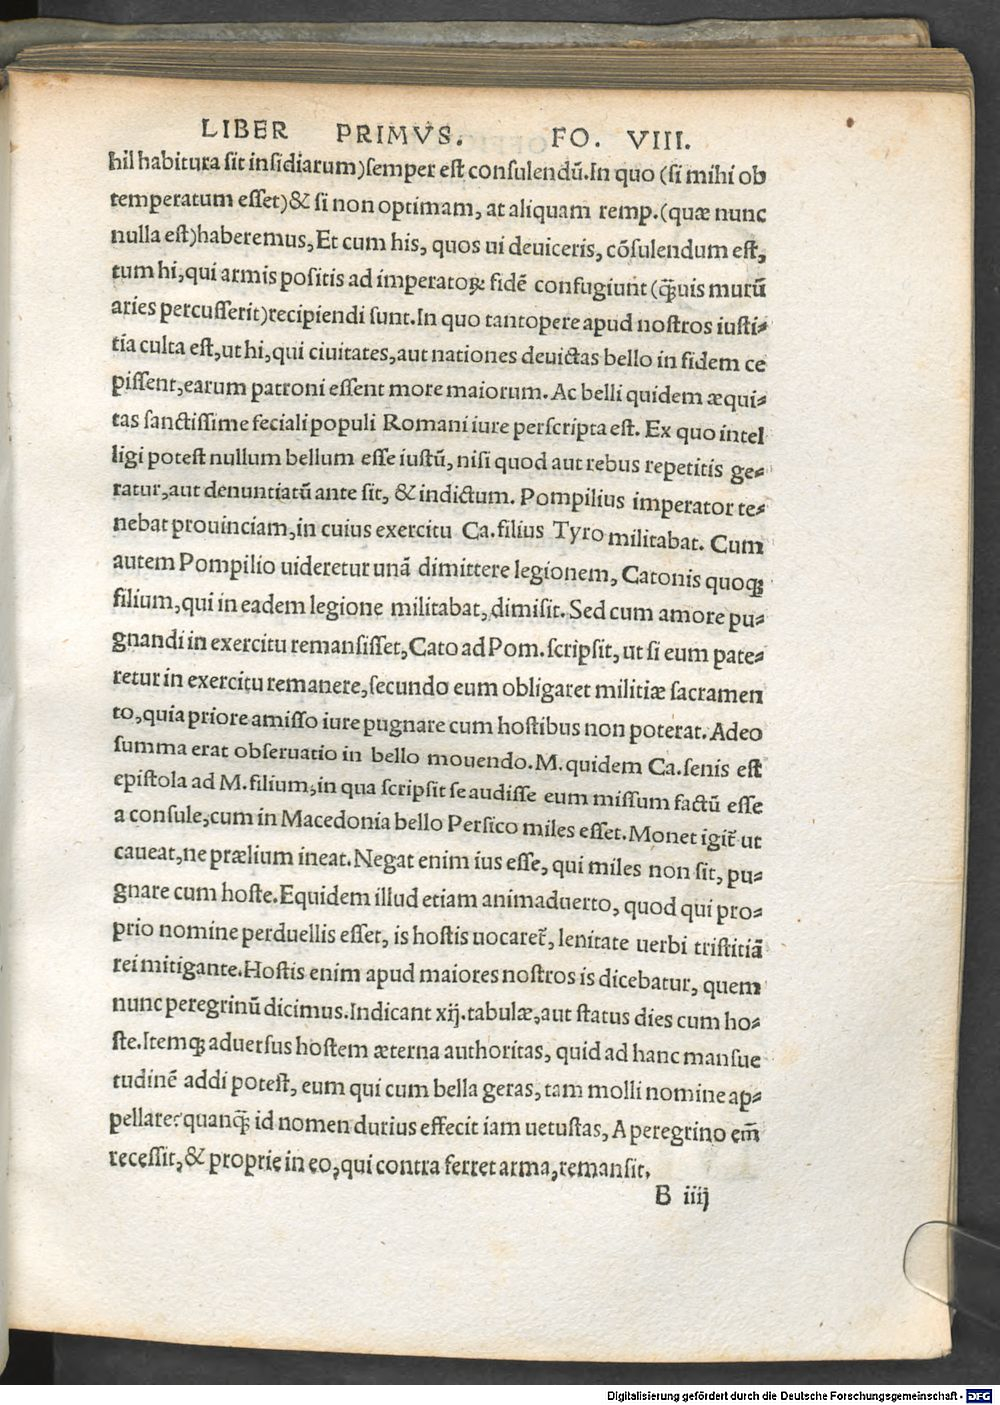 LIBER PRIMVS. FO. VIII.
hil habitura sit insidiarum)semper est consulendū.In quo (si mihi ob
temperatum esset)& si non optimam, at aliquam remp.(quæ nunc
nulla est)haberemus,Et cum his, quos ui deuiceris, cōsulendum est,
tum hi,qui armis positis ad imperatoꝝ fidē confugiunt (q̄uis murū
aries percusserit)recipiendi sunt.In quo tantopere apud nostros iusti⸗
tia culta est,ut hi,qui ciuitates,aut nationes deuictas bello in fidem ce
pissent,earum patroni essent more maiorum. Ac belli quidem æqui⸗
tas sanctissime feciali populi Romani iure perscripta est. Ex quo intel
ligi potest nullum bellum esse iustū, nisi quod aut rebus repetitis ge⸗
ratur,aut denuntiatū ante sit, & indictum. Pompilius imperator te⸗
nebat prouinciam,in cuius exercitu Ca.filius Tyro militabat. Cum
autem Pompilio uideretur unā dimittere legionem, Catonis quoqꝫ
filium,qui in eadem legione militabat, dimisit. Sed cum amore pu⸗
gnandi in exercitu remansisset,Cato ad Pom.scripsit, ut si eum pate⸗
retur in exercitu remanere,secundo eum obligaret militiæ sacramen
to,quia priore amisso iure pugnare cum hostibus non poterat.Adeo
summa erat obseruatio in bello mouendo.M.quidem Ca.senis est
epistola ad M.filium,in qua scripsit se audisse eum missum factū esse
a consule,cum in Macedonia bello Persico miles esset.Monet igit̄ ut
caueat,ne prælium ineat.Negat enim ius esse, qui miles non sit, pu⸗
gnare cum hoste.Equidem illud etiam animaduerto, quod qui pro⸗
prio nomine perduellis esset, is hostis uocaret̄, lenitate uerbi tristitiā
rei mitigante.Hostis enim apud maiores nostros is dicebatur, quem
nunc peregrinū dicimus.Indicant xij.tabulæ,aut status dies cum ho⸗
ste.Itemqꝫ aduersus hostem æterna authoritas, quid ad hanc mansue
tudinē addi potest, eum qui cum bella geras, tam molli nomine ap⸗
pellare?quanq̄ꝫ id nomen durius effecit iam uetustas, A peregrino em̄
recessit,& proprie in eo,qui contra ferret arma,remansit.
B iiij
Digitalisierung gefördert durch die Deutsche Forschungsgemeinschaft - DFG